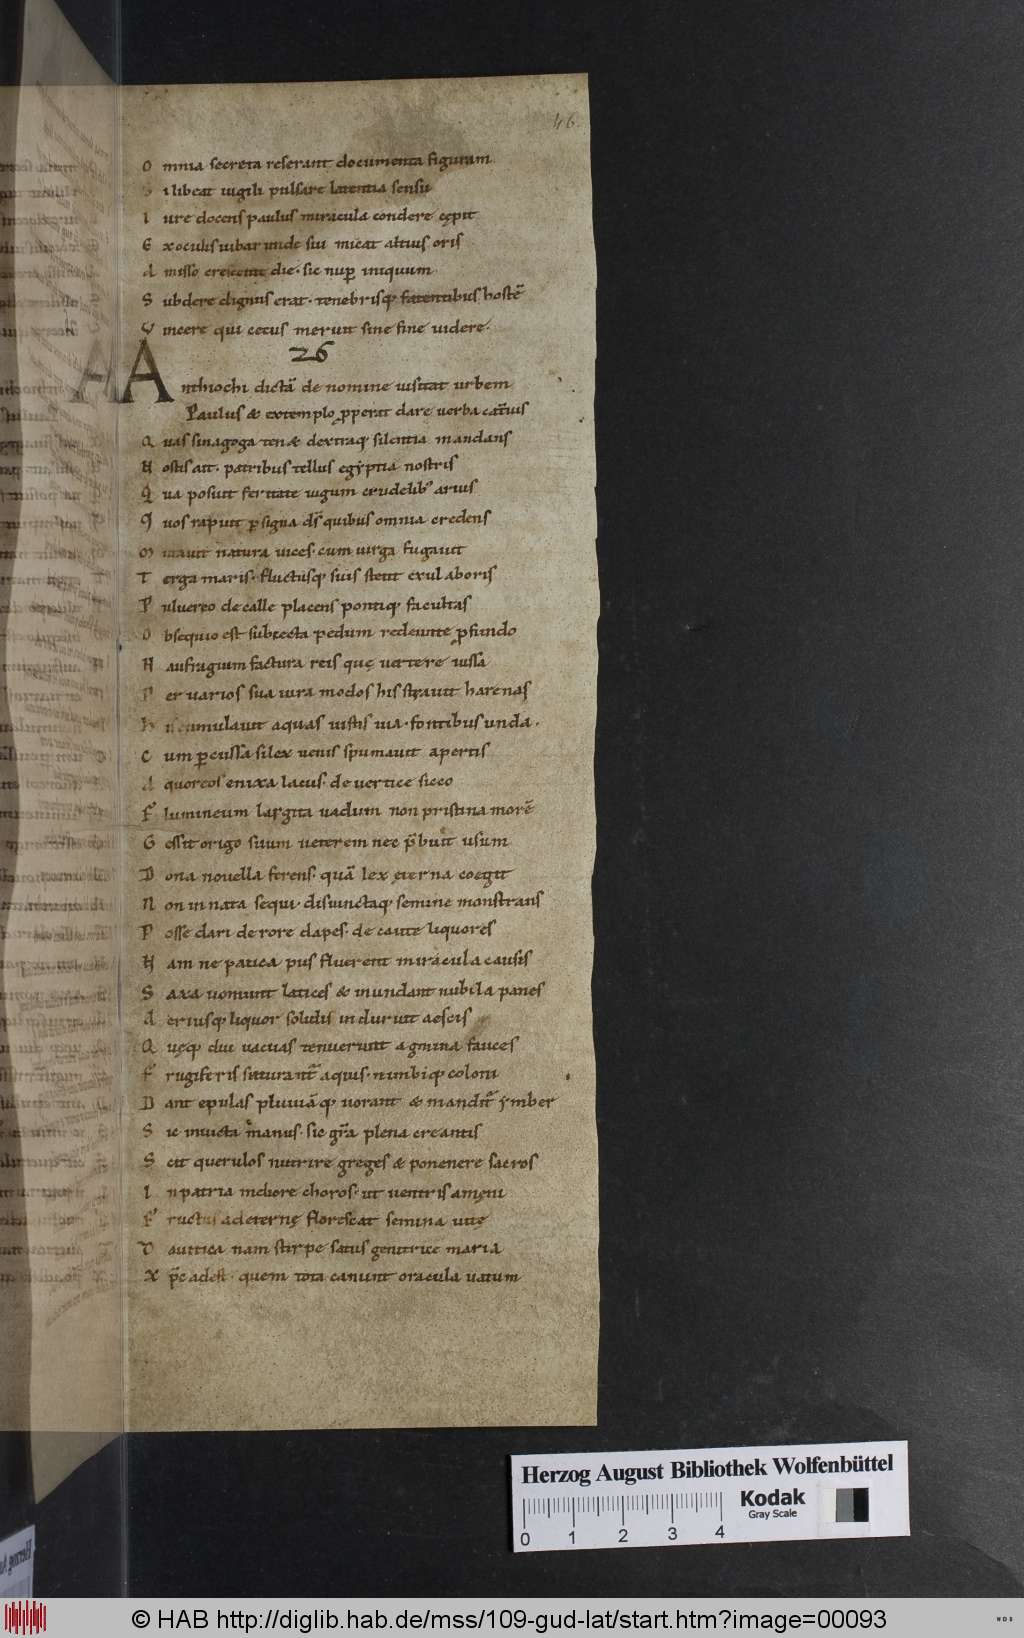 46.
O mnia secreta reserant documenta figuram
S i libeat uigili pulsare latentia sensu
I ure docens paulus miracula condere cępit
E x oculis iubar unde sui micat altius oris
A misso crescente die. sic nup̄ iniquum
S ubdere dignus erat. tenebrisq; fatentibus hostē
V incere qui cecus meruit sine fine uidere.
26
A nthiochi dictā de nomine uisitat urbem
Paulus & extemplo p̱perat dare uerba
Q uas sinagoga ten& dextraq; silentia mandans
H ostis ait. patribus tellus egẏptia nostris
Q ua posuit feritate iugum crudelib; arius
Q uos rapuit p̱ signa ds̄ quibus omnia credens
M utauit natura uices. cum uirga fugauit
T erga maris. fluctusq; suis stetit exul aboris
P uluereo de calle placens pontiq; facultas
O bsequio est subiecta pedum redeunte p̱fundo
N aufragium factura reis quę uertere iussa
P er uarios sua iura modos his strauit harenas
H is cumulauit aquas uistis uia. fontibus unda.
C um p̱cussa silex uenis spumauit apertis
A equoreos enixa lacus. de uertice sicco
F lumineum largita uadum non pristina morē
G essit origo suum ueterem nec p̄buit usum
D ona nouella ferens. quā lex ęterna coegit
N on innata sequi. disiunctaq; semine monstrans
P osse dari de rore dapes. de caute liquores
N am ne patica pus fluerent miracula causis
S axa uomunt latices & inundant nubila panes
A eriusq; liquor solidis induruit aescis
Q uęq; diu uacuas tenuerunt agmina fauces
F rugiferis saturant̄ aquis. nimbiq; coloni
D ant epulas pluuiāq; uorant & mandit̄ ẏmber
S ic inuicta manus. sic gr̄a plena creantis
S cit querulos nutrire greges & ponenere sacros
I n patria meliore choros. ut uentris amęni
F ructus ad eternę florescat semina uitę
D auitica nam stirpe satus genitrice maria
X p̄c adest. quem tota canunt oracula uatum
Herzog August Bibliothek Wolfenbüttel
Kodak
Gray Scale
0 1 2 3 4
© HAB http://diglib.hab.de/mss/109-gud-lat/start.htm?image=00093
WDB